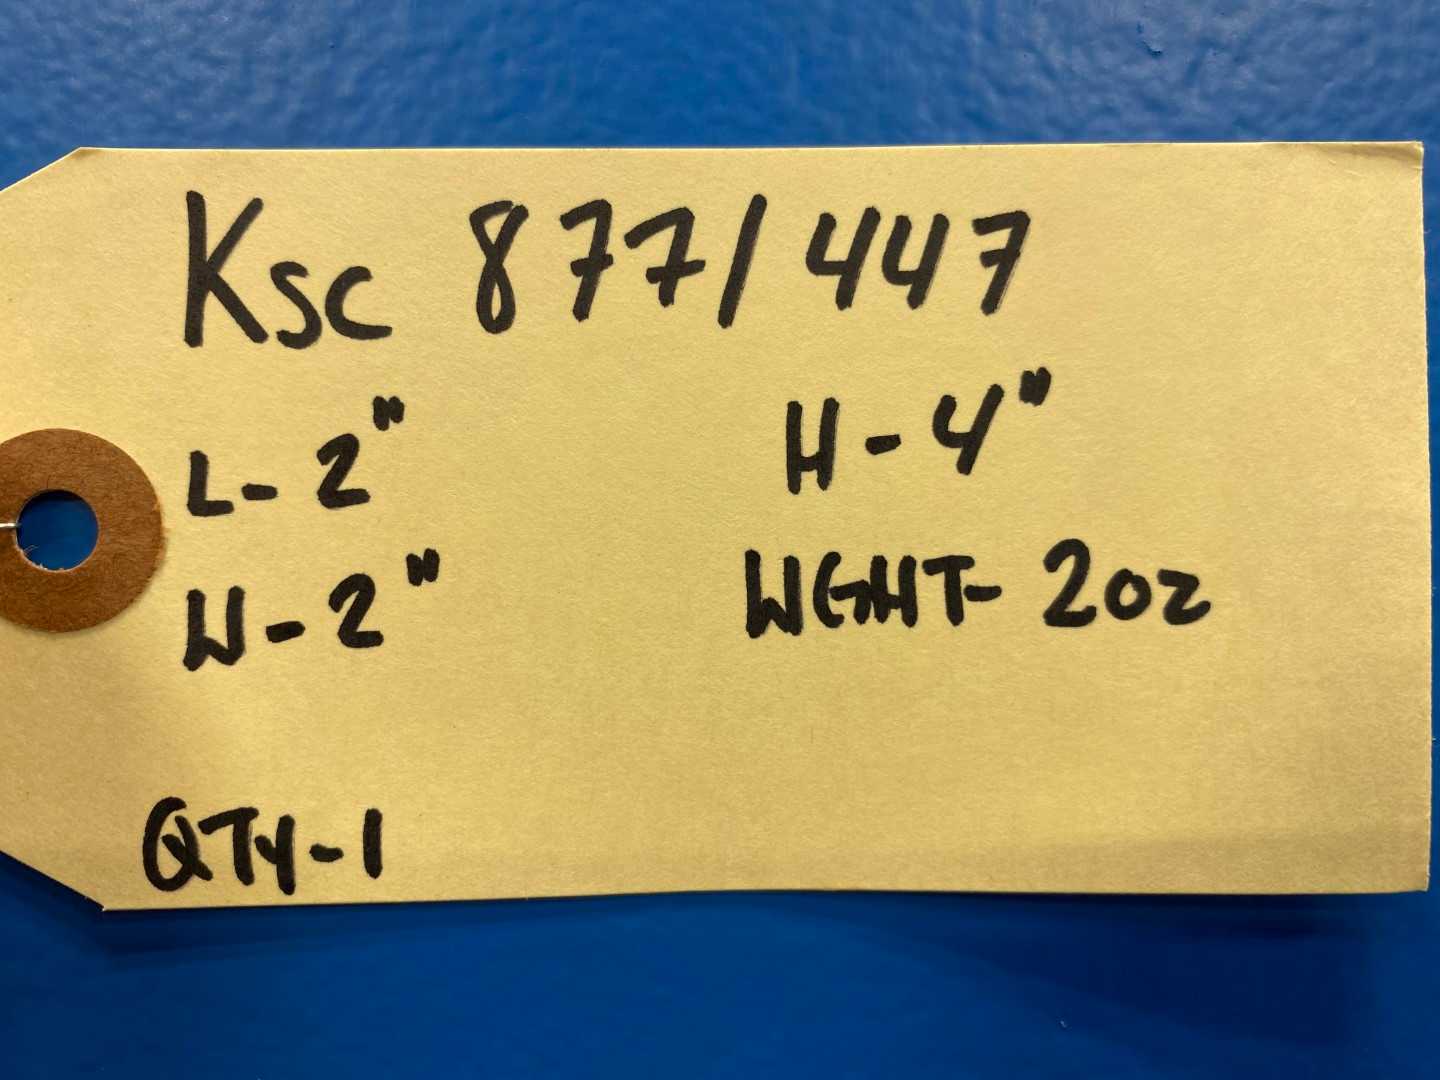 Ksc 877/447
L-2" H-4"
W-2" WGHT-2oz
QTY-1